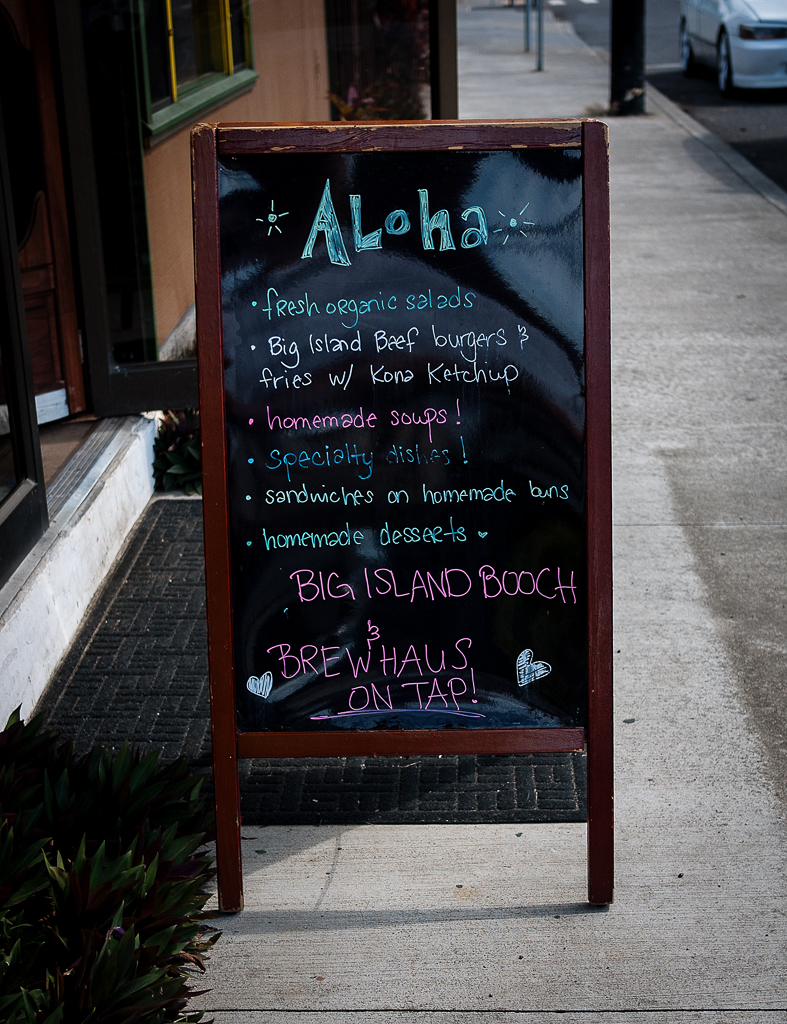 ALoha
• fresh organic salads
• Big Island Beef burgers &
fries w/ Kona Ketchup
• homemade soups!
• Specialty dishes!
• sandwiches on homemade buns
• homemade desserts
BIG ISLAND BOOCH
&
BREWHAUS
ON TAP!